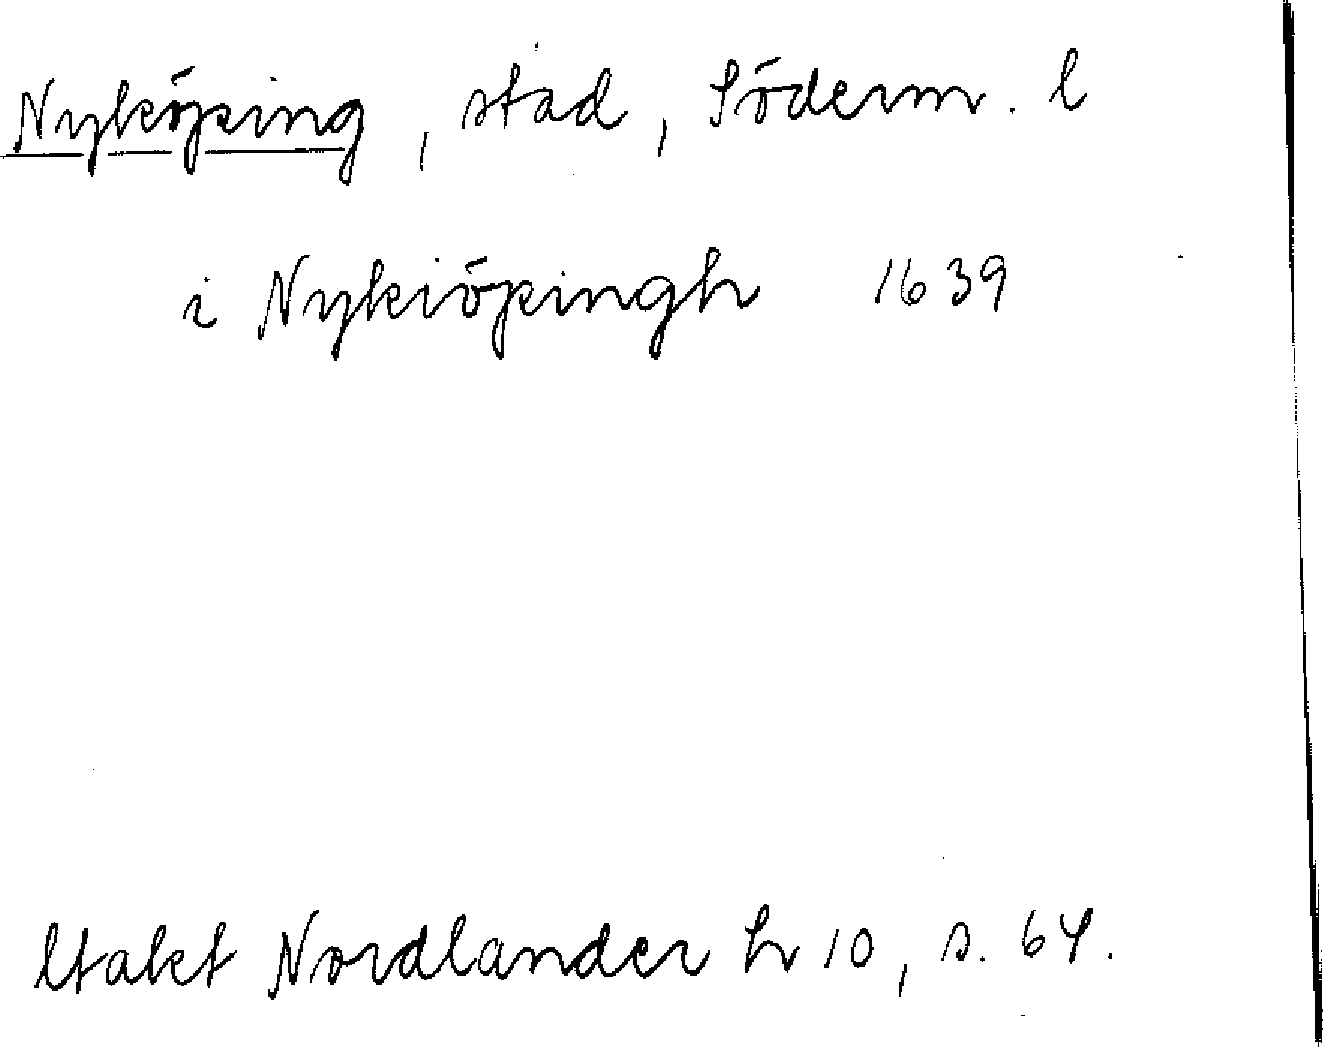 Nyköping, stad, Söderm. l
i Nykiöpingh 1639
Utakt Nordlander h 10, s. 64.